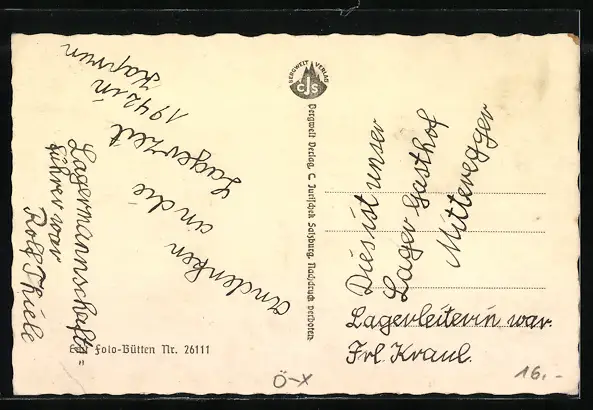 Andenken
an die
Lagerzeit
1942 in
Kaprun
Lagermannschafts-
führer war
Rolf Thiele
Echt Foto-Bütten Nr. 26111
BERGWELT VERLAG
CJS
Bergwelt Verlag, C. Jurischek Salzburg. Nachdruck verboten
Dies ist unser
Lager Gasthof
Mitteregger
Lagerleiterin war.
Frl. Kraul.
Ö-X
16.-